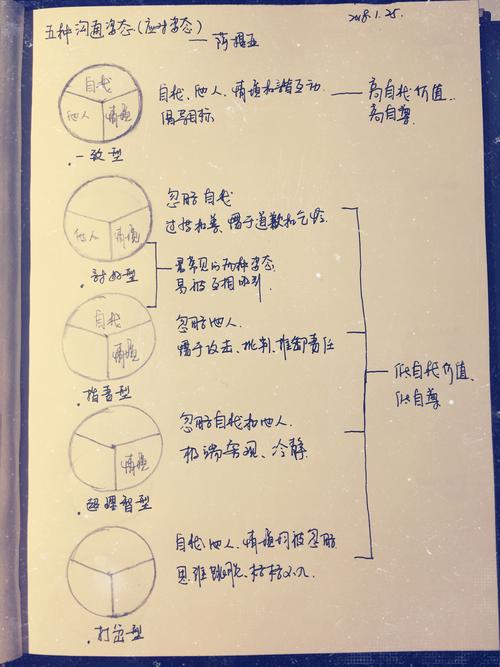 五种沟通姿态(应对姿态)
2018.1.25.
——萨提亚
自我
他人
情境
·一致型
自我、他人、情境和谐互动
倡导目标
高自我价值
高自尊
他人
情境
·讨好型
忽略自我
过于和善、惯于道歉和乞怜
最常见的两种姿态
易被互相吸引
自我
情境
·指责型
忽略他人
惯于攻击、批判、推卸责任
低自我价值
低自尊
情境
·超理智型
忽略自我和他人
极端客观、冷静
·打岔型
自我、他人、情境均被忽略
思维跳脱、